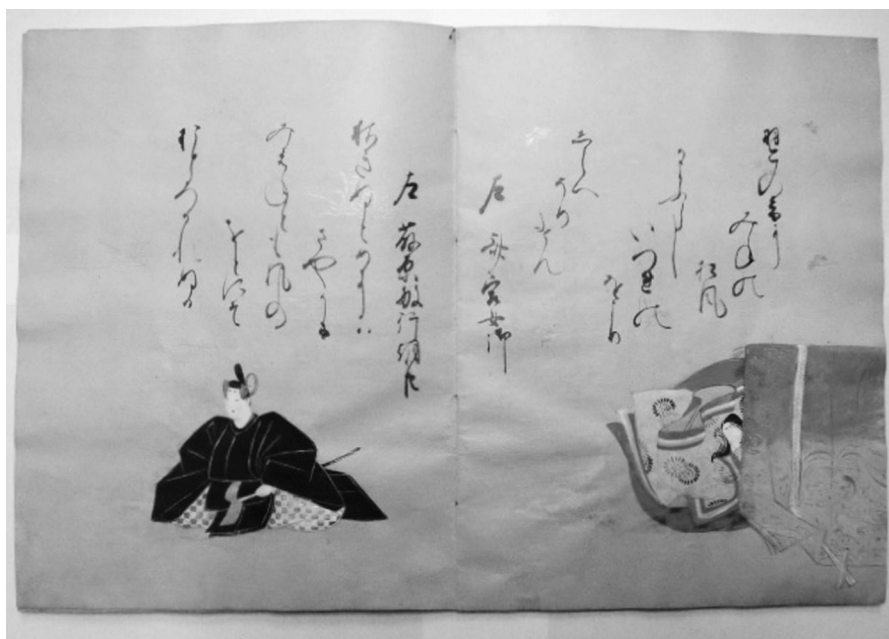 琴のねに
みねの
松風
かよふらし
いつれの
をより
しらへ
そめ
けん
左 斎宮女御
左 藤原敏行朝臣
秋きぬとめには
さやかに
みえねとも風の
をとにそ
おとろかれぬる